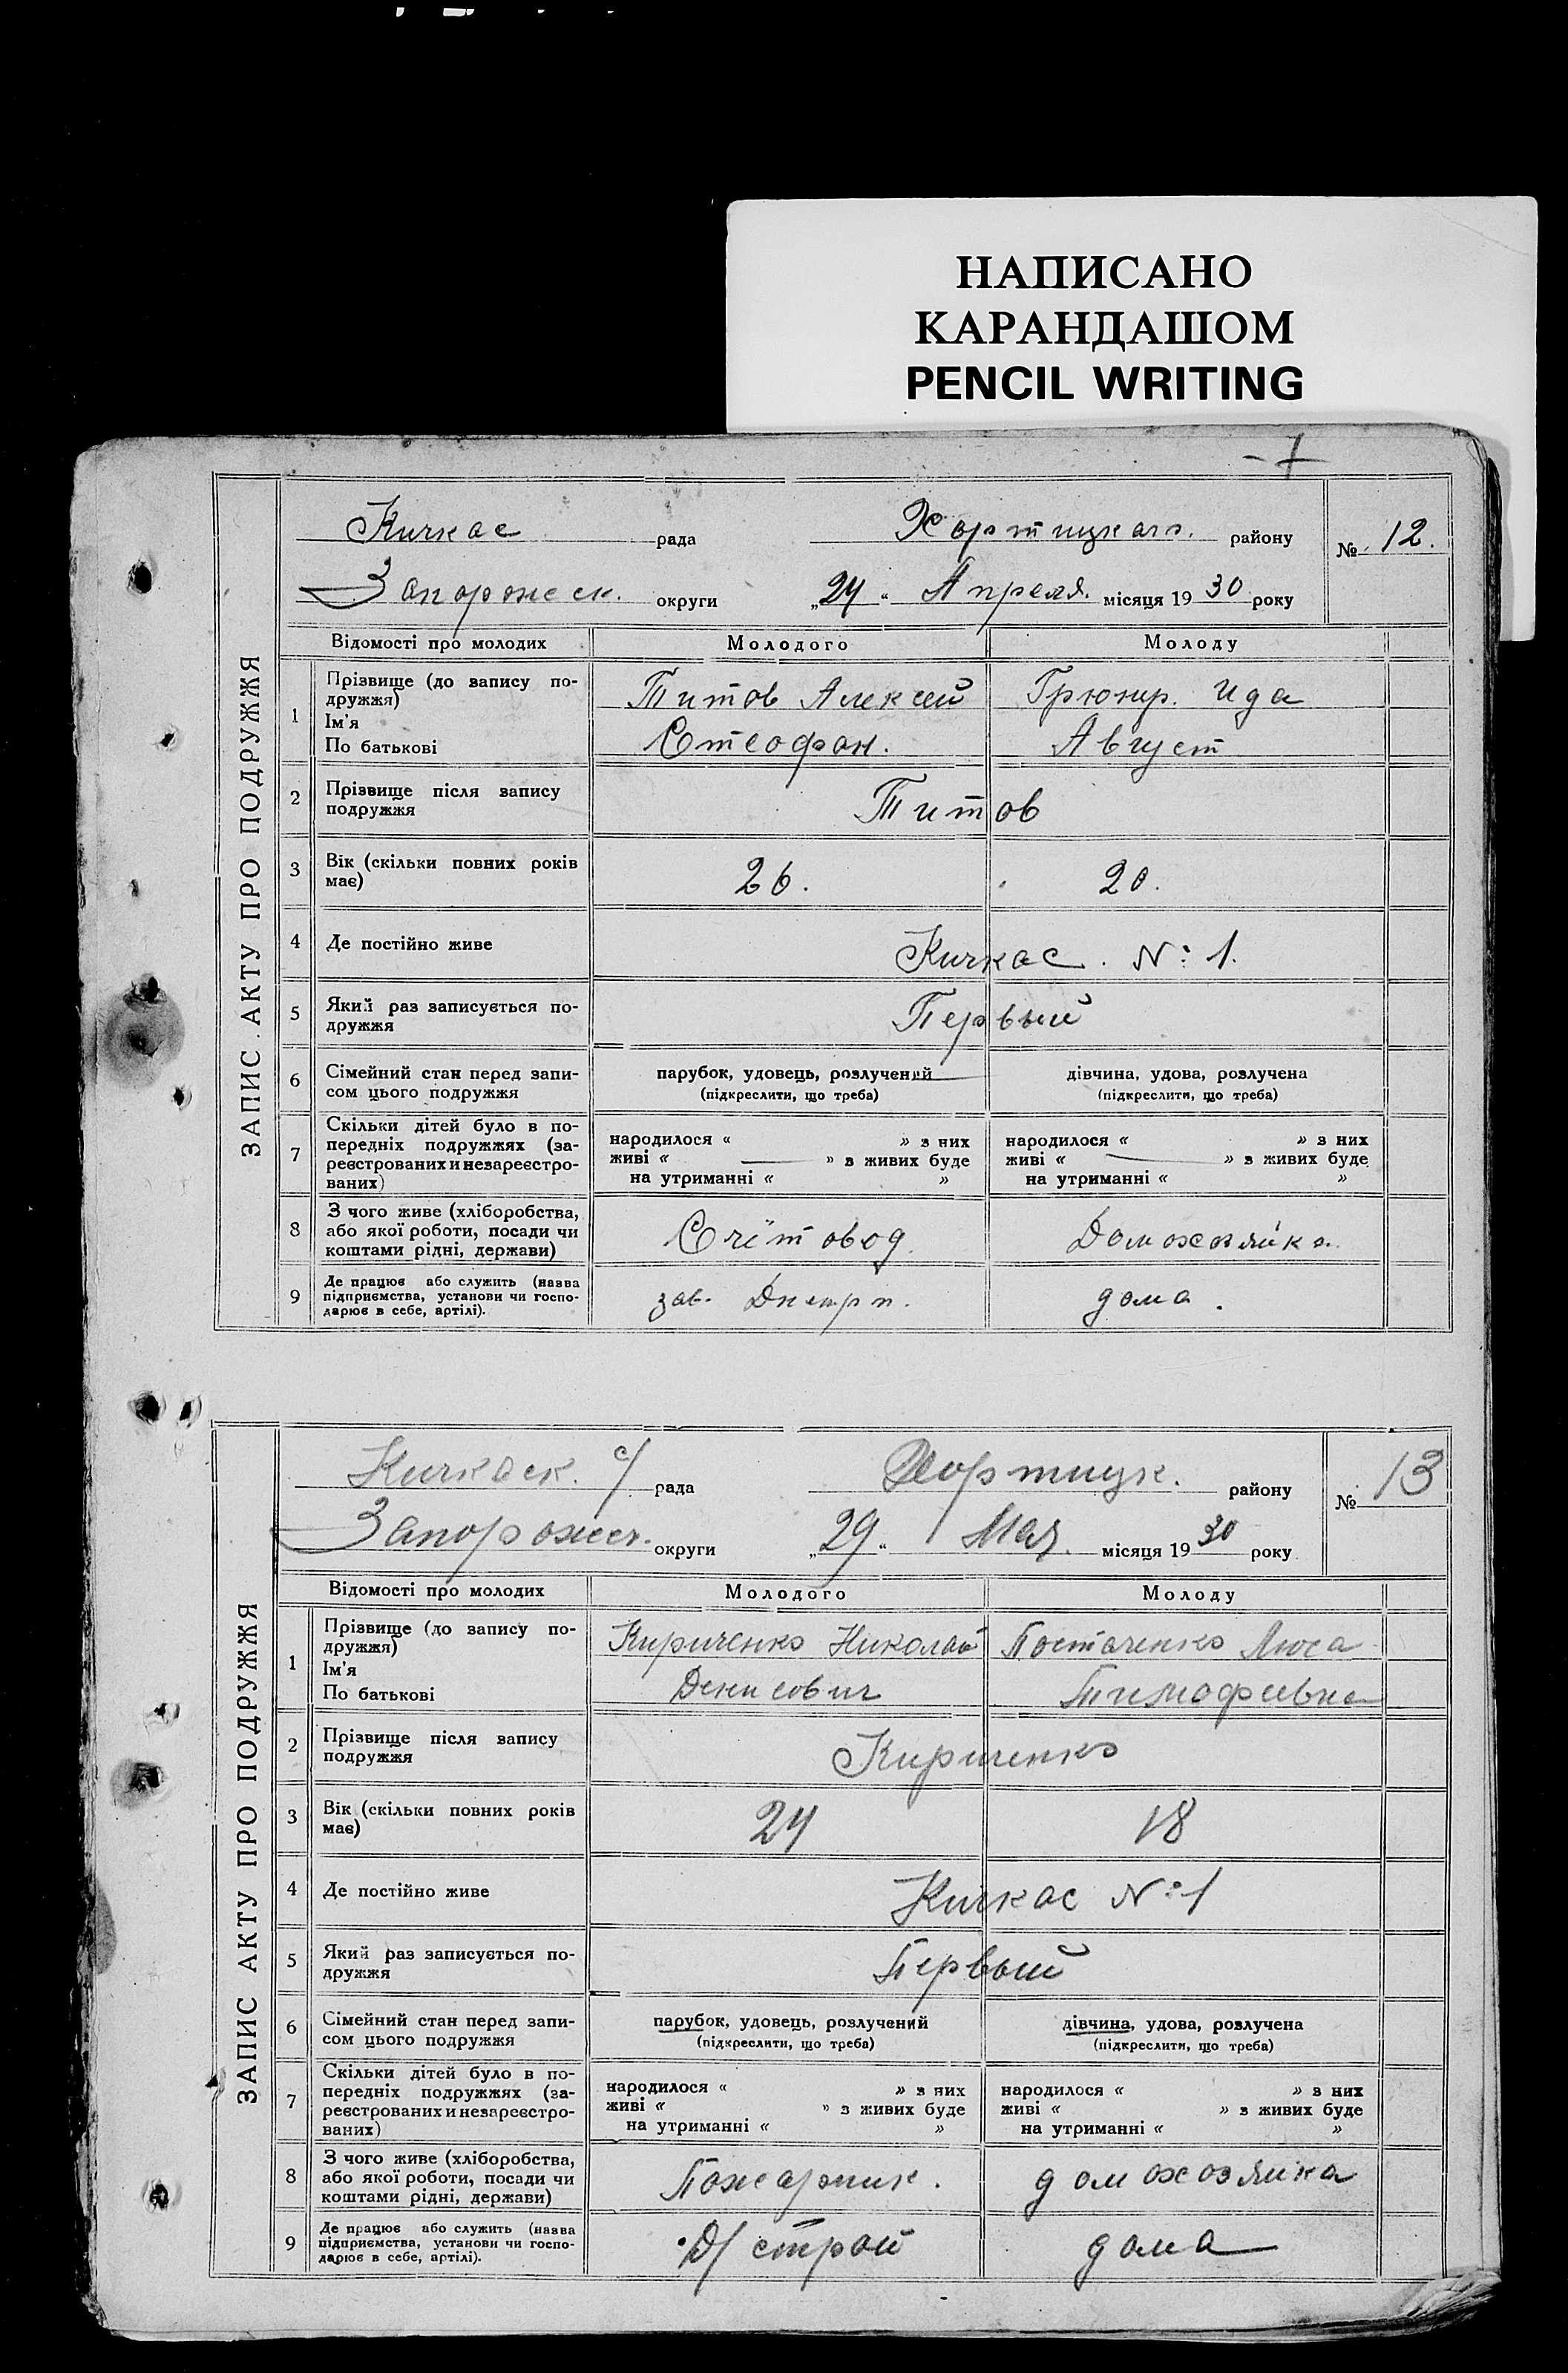 НАПИСАНО
КАРАНДАШОМ
PENCIL WRITING
ЗАПИС АКТУ ПРО ПОДРУЖЖЯ
Кичкас рада Хортицкаго. району № 12.
Запорожск. округи „24“ Апреля. місяця 1930 року
Відомості про молодих Молодого Молоду
1 Прізвище (до запису по-
дружжя)
Ім'я
По батькові
Титов Алексей Грюнер. Ида
Стеофан. Август
2 Прізвище після запису
подружжя
Титов
3 Вік (скільки повних років
має)
26. 20.
4 Де постійно живе Кичкас. №: 1.
5 Який раз записується по-
дружжя
Первый
6 Сімейний стан перед запи-
сом цього подружжя
парубок, удовець, розлучений дівчина, удова, розлучена
(підкреслити, що треба) (підкреслити, що треба)
7 Скільки дітей було в по-
передніх подружжях (за-
реєстрованих и незареєстро-
ваних)
народилося « » з них народилося « » з них
живі « » з живих буде живі « » з живих буде
на утриманні « » на утриманні « »
8 З чого живе (хліборобства,
або якої роботи, посади чи
коштами рідні, держави)
Счётовод. Домохозяйка.
9 Де працює або служить (назва
підприємства, установи чи госпо-
дарює в себе, артілі).
зав. дома.
ЗАПИС АКТУ ПРО ПОДРУЖЖЯ
Кичкаск. с/ рада Хортицк. району № 13
округи „29“ Мая. місяця 1930 року
Відомості про молодих Молодого Молоду
1 Прізвище (до запису по-
дружжя)
Ім'я
По батькові
Кириченко Николай Люса
Денисович Тимофеевна
2 Прізвище після запису
подружжя
Кириченко
3 Вік (скільки повних років
має)
24 18
4 Де постійно живе Кичкас №: 1
5 Який раз записується по-
дружжя
Первый
6 Сімейний стан перед запи-
сом цього подружжя
парубок, удовець, розлучений дівчина, удова, розлучена
(підкреслити, що треба) (підкреслити, що треба)
7 Скільки дітей було в по-
передніх подружжях (за-
реєстрованих и незареєстро-
ваних)
народилося « » з них народилося « » з них
живі « » з живих буде живі « » з живих буде
на утриманні « » на утриманні « »
8 З чого живе (хліборобства,
або якої роботи, посади чи
коштами рідні, держави)
Пожарник. домохозяйка
9 Де працює або служить (назва
підприємства, установи чи госпо-
дарює в себе, артілі).
Д/строй дома